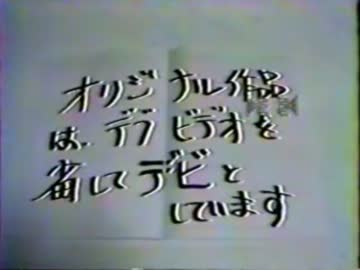 オリジナル作品
は、デブビデオを
省してデビと
しています